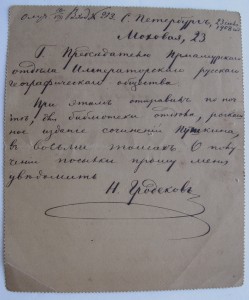 С. Петербургъ, 23
Моховая, 23
Г. Председателю Приамурскаго
отдѣла Императорскаго русскаго
географическаго общества
При этомъ отправивъ по поч-
тѣ, для библіотеки отдѣла, роскош-
ное изданіе сочиненій Пушкина,
въ восьми томахъ, о полу-
ченіи посылки прошу меня
увѣдомить
Н. Гродековъ